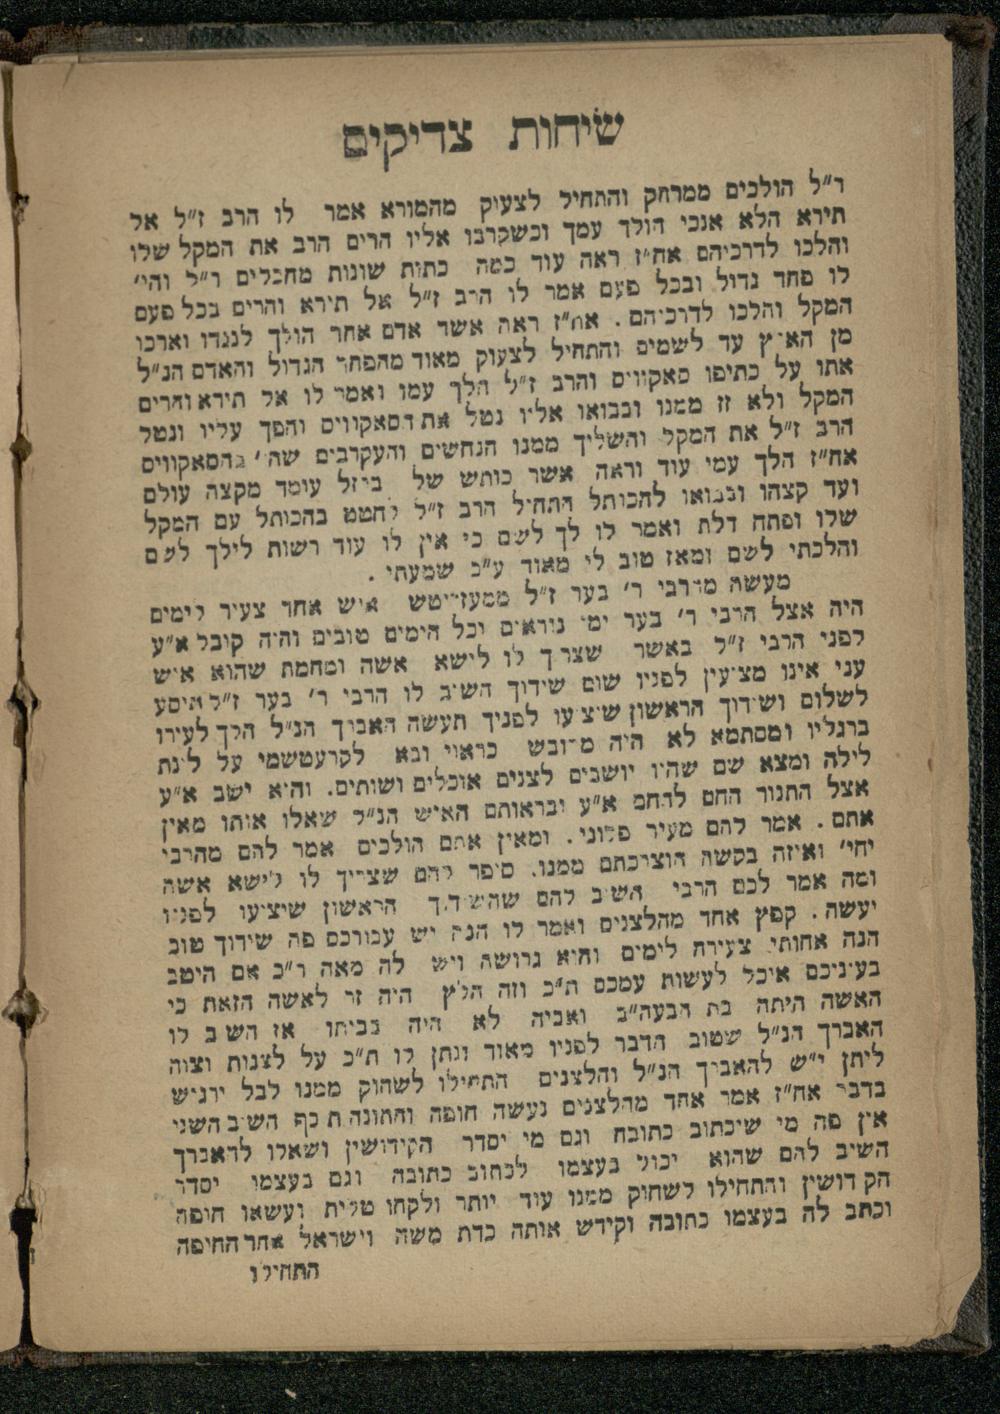 שיחות צדיקים
ר״ל הולכים ממרחק והתחיל לצעוק מהמורא אמר לו הרב ז״ל אל
תירא הלא אנכי הולך עמך וכשקרבו אליו הרים הרב את המקל שלו
והלכו לדרכיהם אח״ז ראה עוד כמה כתות שונות מחבלים ר״ל והי׳
לו פחד גדול ובכל פעם אמר לו הרב ז״ל אל תירא והרים בכל פעם
המקל והלכו לדרכיהם. אח״ז ראה אשר אדם אחד הולך לנגדו וארכו
מן הארץ עד לשמים והתחיל לצעוק מאוד מהפחד הגדול והאדם הנ״ל
אתו על כתיפו סאקווים והרב ז״ל הלך עמו ואמר לו אל תירא והרים
המקל ולא זז ממנו ובבואו אליו נטל את הסאקווים והפך עליו ונטל
הרב ז״ל את המקל והשליך ממנו הנחשים והעקרבים שהי׳ בהסאקווים
אח״ז הלך עמי עוד וראה אשר כותש של ברזל עומד מקצה עולם
ועד קצהו ובבואו להכותל התחיל הרב ז״ל לחטט בהכותל עם המקל
שלו ופתח דלת ואמר לו לך לשם כי אין לו עוד רשות לילך לשם
והלכתי לשם ומאז טוב לי מאוד ע״כ שמעתי.
מעשה מהרבי ר׳ בער ז״ל ממעזריטש איש אחד צעיר לימים
היה אצל הרבי ר׳ בער ימי נוראים וכל הימים טובים והיה קובל א״ע
לפני הרבי ז״ל באשר שצריך לו לישא אשה ומחמת שהוא איש
עני אינו מציעין לפניו שום שידוך השיב לו הרבי ר׳ בער ז״ל תיסע
לשלום ושידוך הראשון שיציעו לפניך תעשה האברך הנ״ל הלך לעירו
ברגליו ומסתמא לא היה מלובש כראוי ובא לקרעטשמי על לינת
לילה ומצא שם שהיו יושבים לצנים אוכלים ושותים. והוא ישב א״ע
אצל התנור החם לחמם א״ע ובראותם האיש הנ״ל שאלו אותו מאין
אתם. אמר להם מעיר פלוני. ומאין אתם הולכים אמר להם מהרבי
יחי׳ ואיזה בקשה הוצרכתם ממנו. סיפר להם שצריך לו לישא אשה
ומה אמר לכם הרבי השיב להם שהשידוך הראשון שיציעו לפניו
יעשה. קפץ אחד מהלצנים ואמר לו הנה יש עבורכם פה שידוך טוב
הנה אחותי צעירה לימים והיא גרושה ויש לה מאה ר״כ אם היטב
בעיניכם איכל לעשות עמכם ת״כ וזה הלץ היה זר לאשה הזאת כי
האשה היתה בת הבעה״ב ואביה לא היה בביתו אז השיב לו
האברך הנ״ל שטוב הדבר לפניו מאוד ונתן לו ת״כ על לצנות וצוה
ליתן י״ש להאברך הנ״ל והלצנים התחילו לשחוק ממנו לבל ירגיש
בדבר אח״ז אמר אחד מהלצנים נעשה חופה וחתונה תכף השיב השני
אין פה מי שיכתוב כתובה וגם מי יסדר הקידושין ושאלו להאברך
השיב להם שהוא יכול בעצמו לכתוב כתובה וגם בעצמו יסדר
הקדושין והתחילו לשחוק ממנו עוד יותר ולקחו טלית ועשאו חופה
וכתב לה בעצמו כתובה וקידש אותה כדת משה וישראל אחר החיפה
התחילו